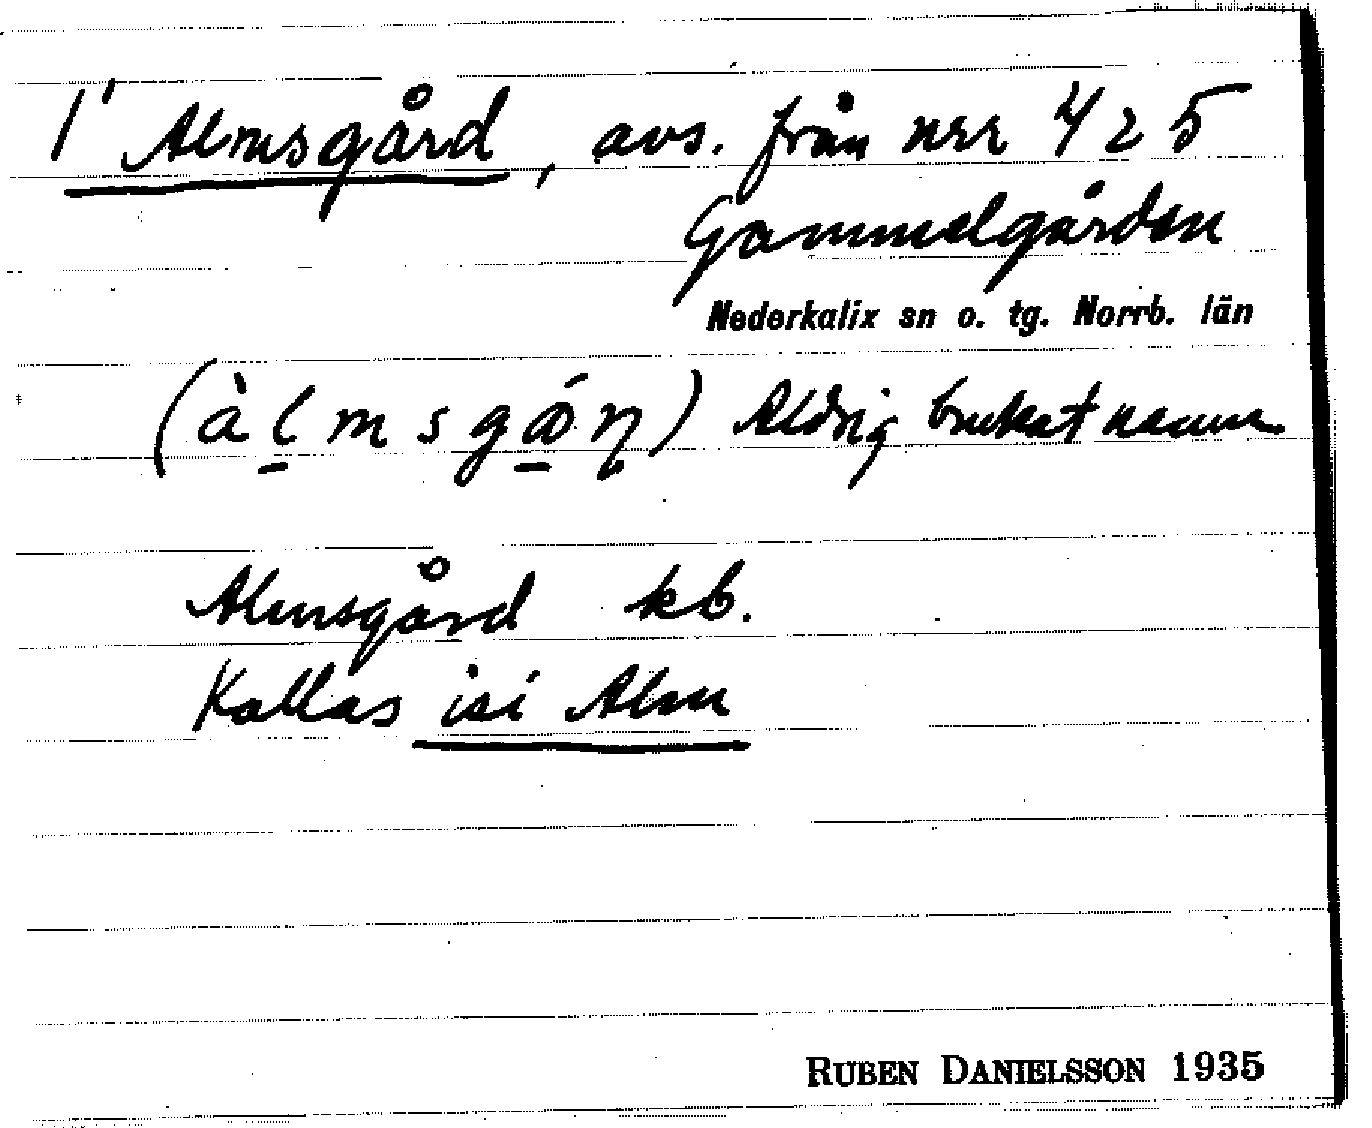 1' Almsgård, avs. från nrr 4 2 5
Gammelgården
Nederkalix sn o. tg. Norrb. län
(àl̠msgǫ́ɳ) Aldrig brukat namn
Almsgård kb.
Kallas isi Alm
RUBEN DANIELSSON 1935